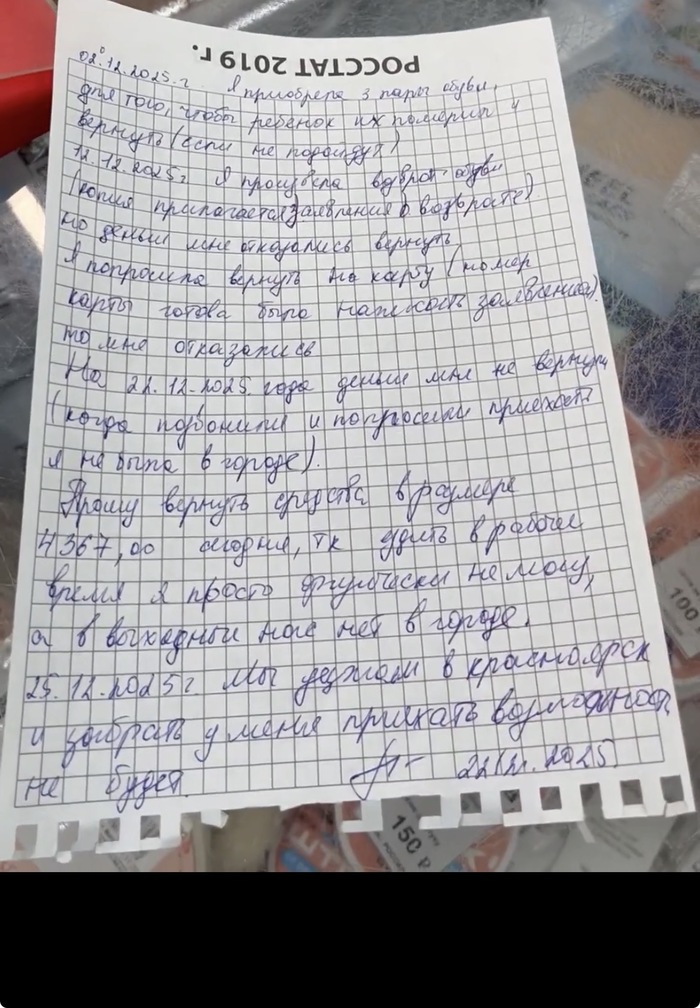 РОССТАТ 2019 г.
02.12.2025 г. Я приобрела 3 пары обуви,
для того, чтобы ребенок их померил и
вернуть (если не подойдут)
12.12.2025г Я произвела возврат обуви
(копия прилагается заявления о возврате)
но деньги мне отказались вернуть
Я попросила вернуть на карту (номер
карты готова была написать заявлению).
но мне отказались
На 22.12.2025 года деньги мне не вернули
(когда позвонили и попросили приехать
я не была в городе).
Прошу вернуть средства в размере
4367,00 сегодня, тк уйти в рабочее
время я просто физически не могу,
а в выходные нас нет в городе.
25.12.2025г. Мы уезжаем в красноярск
и забрать у меня приехать возможности
не будет. 22.12.2025
150 Р
100